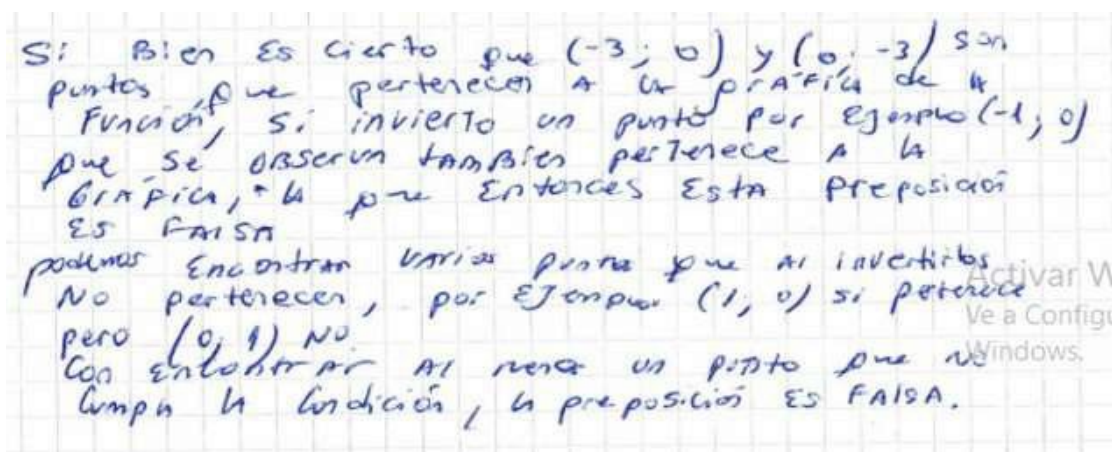 Si Bien Es Cierto que (-3; 0) y (0; -3) son
puntos que pertenecen A la gráfica de la
Función, Si invierto un punto por Ejemplo (-1; 0)
que se OBSERVA tAmBien perTenece A la
GrAfica, la que Entonces EstA Preposición
ES FAlSA
podemos Encontrar VArios puntos que Al invertirlos
No pertenecen, por EJemplo (1, 0) si pertenece
pero (0, 1) NO.
Con Encontrar Al menos un punto que no
Cumpla la Condición, la preposición ES FAlSA.
Activar W
Ve a Configu
Windows.